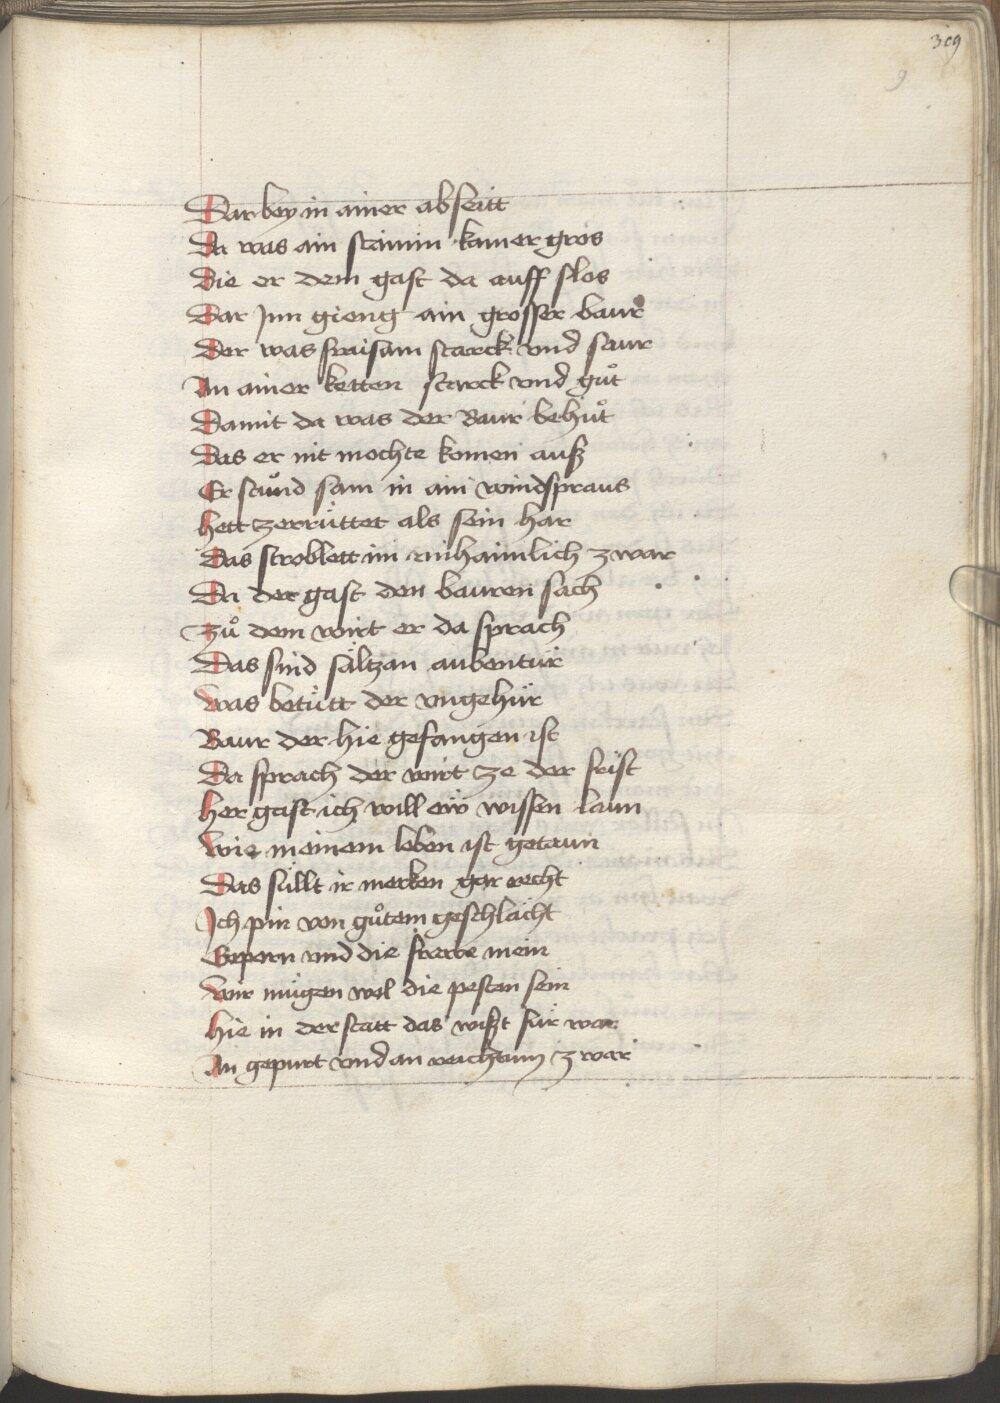 309
9
Dar bey in ainer abseitt
Da was ain stainin kamer gros
Die er dem gast da auff slos
Dar Jnn gieng ain grosser baur
Der was fraisam starck vnd saur
An ainer ketten starck vnd gůt
Damit da was der Baur behůt
Das er nit mochte komen auß
Er stůnd sam in ain windspraus
hett zerrüttet als sein har
Das stroblett im vnhaimlich zwar
Da der gast den bauren sach
Zů dem wirt er da sprach
Das sind sältzan aubentür
Was betütt der vngehür
Baur der hie gefangen ist
Da sprach der wirt ze der frist
her gast ich will ew wissen laun
Wie meinem leben ist getaun
Das süllt ir merken gar recht
Ich pin von gůtem geschlächt
Geporn vnd die frawe mein
Wir mügen wol die pesten sein
hie in der statt das wißt für war
An gepurt vnd an reichtum zwar